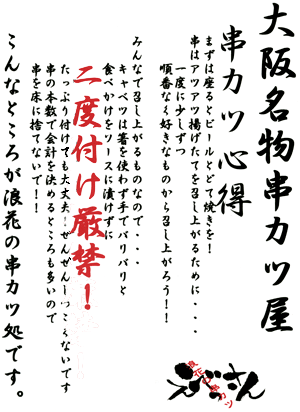 大阪名物串カツ屋
串カツ心得
まずは座るとビールとどて焼きを！
串はアツアツ揚げたてを召し上がるために・・・
一度に少しずつ
順番など好きなものから召し上がろう！！
みんなで召し上がるものなので・・・
キャベツは箸を使わず手でバリバリと
食べかけをソースに漬けずに
二度付け厳禁！
たっぷり付けても大丈夫！ぜんぜんしつこくないです
串の本数で会計を決めるところも多いので
串を床に捨てないで！！
こんなところが浪花の串カツ処です。
浪花の串カツ
えびさん